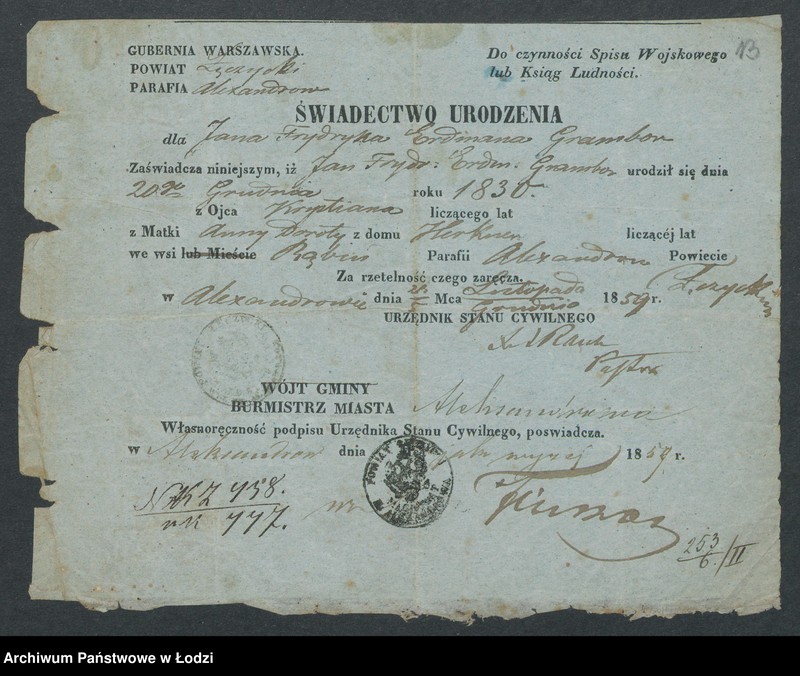 13
GUBERNIA WARSZAWSKA.
POWIAT Łęczycki
PARAFIA Alexandrow
Do czynności Spisu Wojskowego
lub Ksiąg Ludności.
ŚWIADECTWO URODZENIA
dla Jana Frydryka Erdmana Grambor
Zaświadcza niniejszym, iż Jan Frydr: Erdm: Grambor urodził się dnia
20go Grudnia roku 1830.
z Ojca Krystiana liczącego lat
z Matki Anny Doroty z domu liczącéj lat
we wsi lub Mieście Parafii Alexandrow Powiecie
Za rzetelność czego zaręcza. Łęczyckim
w Alexandrowie dnia Mca Listopada Grudnia 1859 r.
URZĘDNIK STANU CYWILNEGO
Pastor
WÓJT GMINY
BURMISTRZ MIASTA Aleksandrowa
Własnoręczność podpisu Urzędnika Stanu Cywilnego, poswiadcza.
w Aleksandrow dnia jak wyżej 1859 r.
253/6./II
Archiwum Państwowe w Łodzi